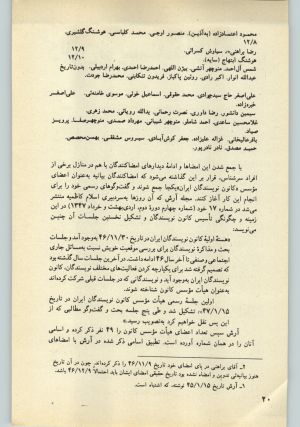 محمود اعتمادزاده (به‌آذین). منصور اوجی. محمد کلباسی. هوشنگ گلشیری.
۱۲/۸
رضا براهنی*. سیاوش کسرائی. ۱۲/۹
هوشنگ ابتهاج (سایه). ۱۲/۱۰
شمس آل‌احمد. منوچهر آتشی. بیژن الهی. احمدرضا احمدی. بهرام اردبیلی. بدون تاریخ
عبدالله انوار. اکبر رادی. روئین پاکباز. فریدون تنکابنی. محمدرضا جودت.
علی‌اصغر حاج سیدجوادی. محمد حقوقی. اسماعیل خوئی. موسوی خامنه‌ئی. علی‌اصغر
خبره‌زاده.
سیمین دانشور. رضا داوری. نصرت رحمانی. یدالله رویائی. محمد زهری.
غلامحسین ساعدی. احمد شاملو. منوچهر شیبانی. مهرداد صمدی. منوچهر صفا. پرویز
صیاد.
باقر عالیخانی. غزاله علیزاده. جعفر کوش‌آبادی. سیروس مشفقی. بهمن محصص.
حمید مصدق. نادر نادرپور.
با جمع شدن این امضاها و ادامهٔ دیدارهای امضاکنندگان با هم در منازل برخی از
افراد سرشناس، قرار بر این گذاشته می‌شود که امضاکنندگان بیانیه به‌عنوان اعضای
مؤسس کانون نویسندگان ایران یکجا جمع شوند و گفت‌وگوهای رسمی خود را برای
انجام این کار آغاز کنند. مجله آرش که آن روزها به‌سردبیری اسلام کاظمیه منتشر
می‌شد در شماره ۱۷ خود (شماره چهارم دورهٔ دوم، اردیبهشت و خرداد ۱۳۴۷) در این
زمینه و چگونگی تأسیس کانون نویسندگان و تشکیل نخستین جلسات آن چنین
می‌نویسد:
«هستهٔ اولیهٔ کانون نویسندگان ایران در تاریخ ۴۶/۱۱/۳۰ به‌وجود آمد و جلسات
بحث و مذاکرهٔ نویسندگان برای بررسی موقعیت خویش نسبت به‌مسائل جاری
اجتماعی و صنفی تا آخر سال ۴۶ ادامه داشت. در آخرین جلسات سال گذشته بود
که تصمیم گرفته شد برای یکپارچه کردن فعالیت‌های مختلف نویسندگان، کانون
نویسندگان ایران به‌وجود آید و نویسندگانی که در جلسات قبلی شرکت کرده‌اند
به‌عنوان هیأت مؤسس کانون شناخته شوند.
اولین جلسهٔ رسمی هیأت مؤسس کانون نویسندگان ایران در تاریخ
۴۷/۱/۱۵ تشکیل شد و طی پنج جلسه بحث و گفت‌وگو مطالبی که از
این پس نقل خواهیم کرد به‌تصویب رسید.»
آرش سپس تعداد اعضای مؤسس کانون را ۴۹ نفر ذکر کرده و اسامی
آنان را در همان شماره آورده است. تطبیق اسامی ذکر شده در آرش با امضاهای
۲ـ آقای براهنی در پای امضای خود تاریخ ۴۶/۱۱/۹ را ذکر کرده‌اند. چون در آن تاریخ
هنوز بیانیه‌ئی تدوین و امضاء نشده بود تاریخ حقیقی امضای ایشان باید احتمالاً ۴۶/۱۲/۹ باشد.
۱ـ آرش تاریخ ۴۵/۱/۱۵ نوشته، که اشتباه است.
۲۰